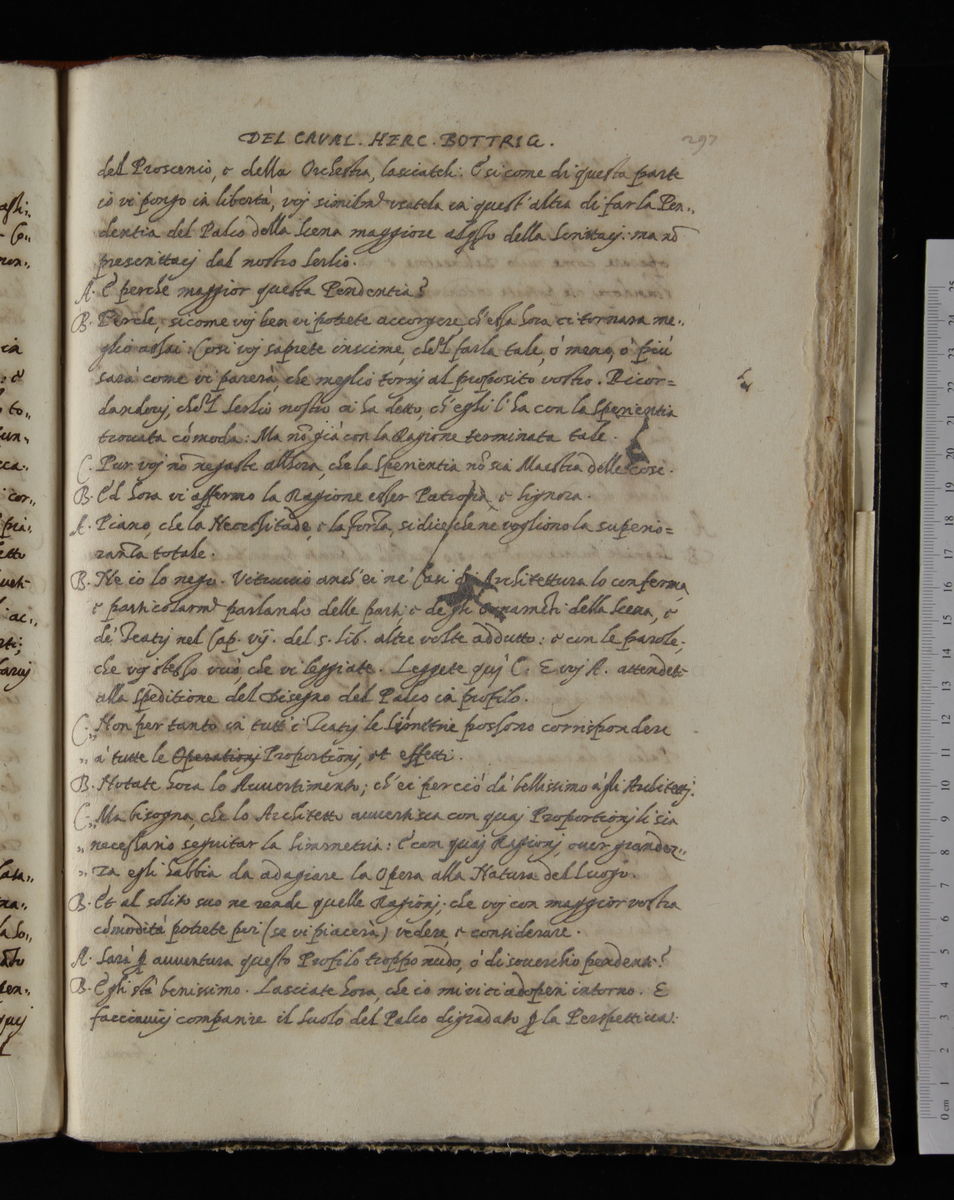 DEL CAVAL. HERC. BOTTRIG. 297
del Proscenio, e della Orchestra, lasciateli. E si come di questa parte
io vi pongo in libertà, voj similmᵉ ... in quest'altra di far la Pen„
dentia del Palco della Scena maggiore ... della ... : ma nõ
presentataci dal nostro Serlio.
A. E perche maggior questa Pendentia?
B. Perche, sicome voj ben vi potrete accorgere, ch'ella hora ci tornarà me„
glio assai. Cosi voj saprete insieme, che'l farla tale, ò meno, ò più
sarà come vi parerà, che meglio tornj al proposito vostro. Ricor=
dandovj, che'l Serlio nostro ci ha detto, ch'egli l'ha con la Sperientia
trovata cõmoda: Ma nõ già con la Ragione terminata tale.
C. Pur voj nõ negaste allhora, che la Sperientia nõ sia Maestra delle cose.
B. Ed hora vi affermo la Ragione esser Patrona, e Signora.
A. Piano, che la Necessitade, e la forza, si dice che ne vogliono la superio=
ranza totale.
B. Ne io lo nego. Vitruvio anch'ei ne' Casi di Architettura lo conferma
e particolarmᵉ parlando delle parti, e degli Ornamẽti della Scena, e
de' Teatrj nel Cap. vij. del 5. Lib. altre volte addutto: e con le parole,
che voj stesso vuò, che vi leggiate. Leggete quj C. E voj A. attendete
alla speditione del Disegno del Palco in profilo.
C. „ Non per tanto in tutt'i Teatrj le Simetrie possono corrispondere
„ à tutte le Operationj Proportionj, et effetti.
B. Notate hora lo Avvertimento; ch'ei perciò dà bellissimo à gli Architettj.
C. „ Ma bisogna, che lo Architetto avvertisca con quaj Proportionj li sia
„ necessario seguitar la Simmetria: E con quaj Ragionj, over grandez„
„ za egli habbia da adagiare la Opera alla Natura del Luogo.
B. Et al solito suo ne rende quelle Ragionj; che voj con maggior vostra
cõmodità potrete poi (se vi piacerà) vedere, e considerare.
A. Sarà ꝑ avventura questo Profilo troppo nudo, ò di soverchio pendente?
B. Egli stà benissimo. Lasciate hora, che io mi vi ci adoperi intorno. E
faccianvij comparire il Suolo del Palco digradato ꝑ la Perspettiva: